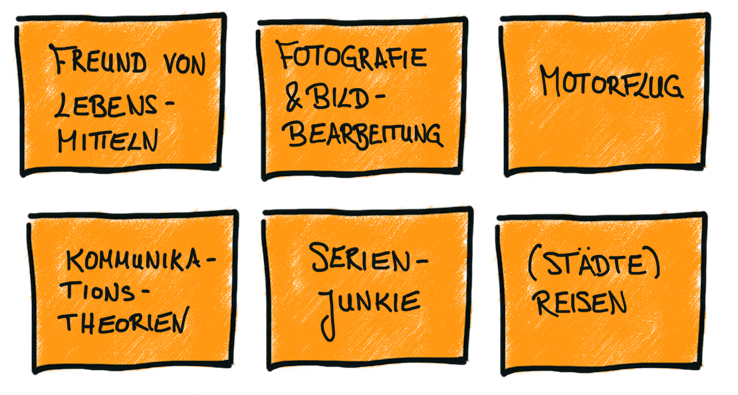 FREUND VON
LEBENS-
MITTELN
FOTOGRAFIE
& BILD-
BEARBEITUNG
MOTORFLUG
KOMMUNIKA-
TIONS-
THEORIEN
SERIEN-
JUNKIE
(STÄDTE)
REISEN